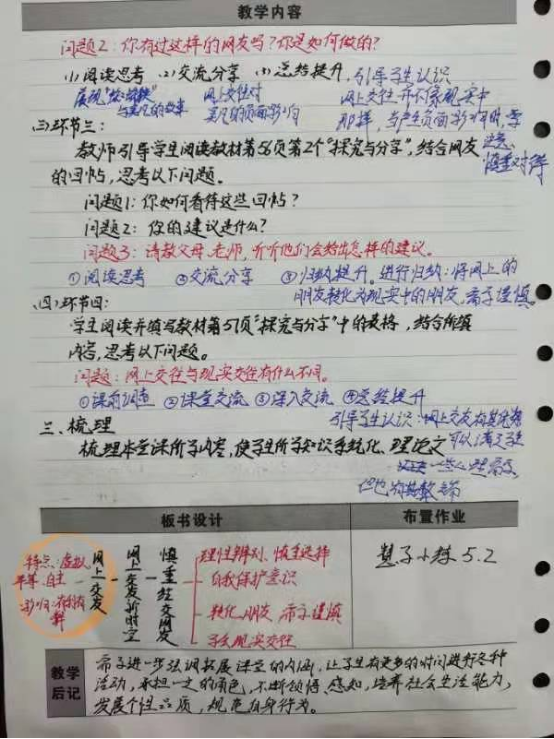 教学内容
问题2：你有过这样的网友吗？你是如何做的？
(1)阅读思考 (2)交流分享 (3)总结提升，引导学生认识
网上交往并不像现实中
那样，与产生负面影响时要
注意，
慎重对待
(三)环节三：
教师引导学生阅读教材第56页第2个"探究与分享"，结合网友
的回帖，思考以下问题。
问题1：你如何看待这些回帖？
问题2：你的建议是什么？
问题3：请教父母、老师，听听他们会给出怎样的建议。
①阅读思考 ②交流分享 ③归纳提升。进行归纳：将网上的
朋友转化为现实中的朋友，需要谨慎。
(四)环节四：
学生阅读并填写教材第57页"探究与分享"中的表格，结合所填
内容，思考以下问题。
问题：网上交往与现实交往有什么不同。
①课前调查 ②课堂交流 ③深入交流 ④总结提升
引导学生认识：网上交友有其优势
三、梳理
可以满足
一些心理需要
梳理本堂课所学内容，使学生所学知识系统化、理论
但也有其
板书设计
布置作业
特点：虚拟
平等、自主
网上交友
网上交友新时空
慎重结交网友
理性辨别、慎重选择
自我保护意识
转化朋友，需要谨慎
学会现实交往
慧学小练5.2
教学
后记
需要进一步强调拓展课堂的内涵，让学生有更多的时间进行各种
活动，承担一定的角色，不断领悟、感知，培养社会生活能力，
发展个性品质，规范自身行为。